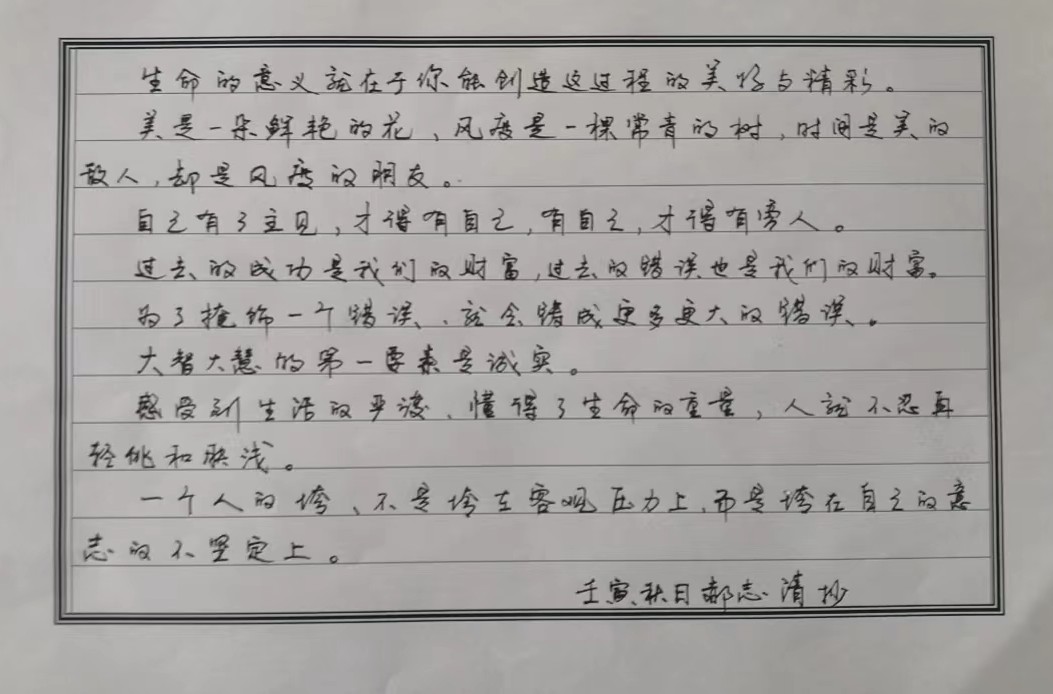 生命的意义就在于你能创造这过程的美好与精彩。
美是一朵鲜艳的花、风度是一棵常青的树，时间是美的
敌人，却是风度的朋友。
自己有了主见，才得有自己，有自己，才得有旁人。
过去的成功是我们的财富，过去的错误也是我们的财富。
为了掩饰一个错误、就会铸成更多更大的错误、。
大智大慧的第一要素是诚实。
感受到生活的严峻、懂得了生命的重量，人就不忍再
轻佻和肤浅。
一个人的垮、不是垮在客观压力上、而是垮在自己的意
志的不坚定上。
壬寅秋日郝志清抄